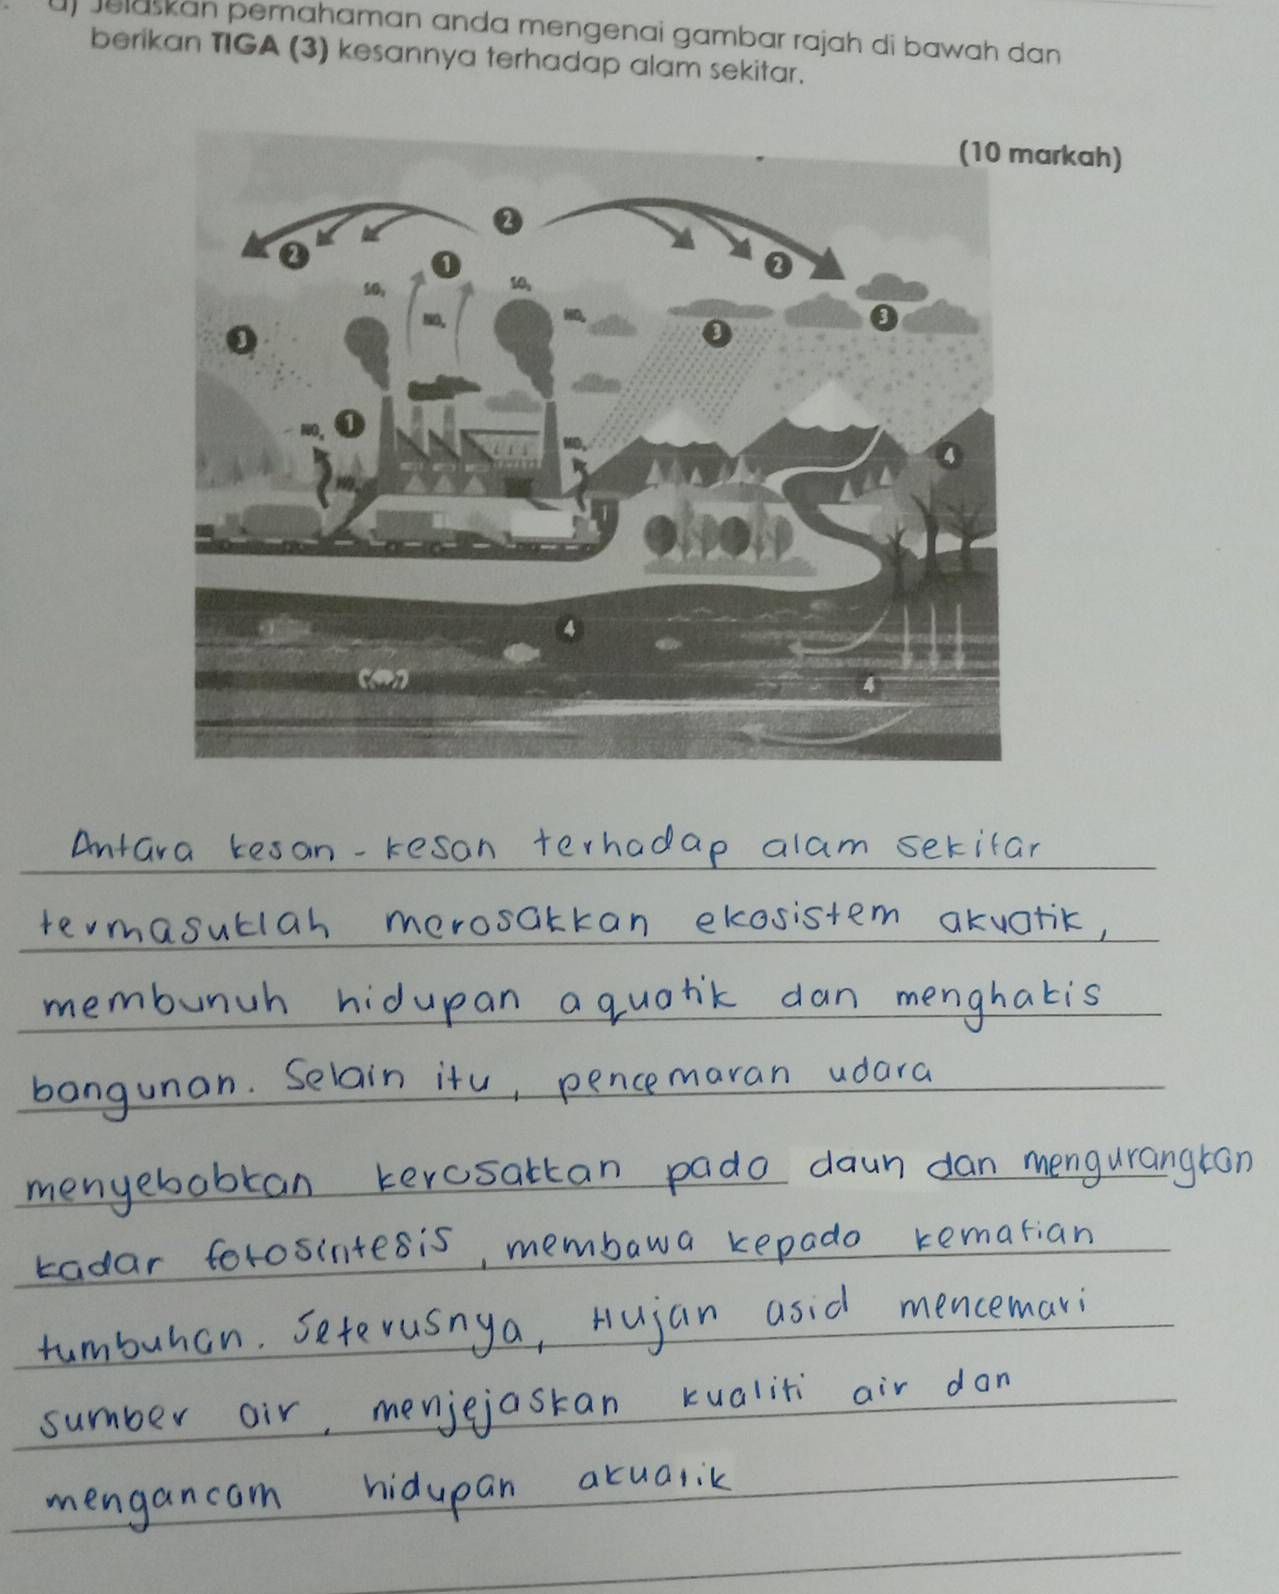 a) Jelaskan pemahaman anda mengenai gambar rajah di bawah dan
berikan TIGA (3) kesannya terhadap alam sekitar.
(10 markah)
2
2
1
2
SO₂
SO₂
NOₓ
NOₓ
3
3
3
NOₓ
1
NOₓ
4
NOₓ
4
4
Antara kesan-kesan terhadap alam sekitar
termasuklah merosakkan ekosistem akuatik,
membunuh hidupan aquatik dan menghakis
bangunan. Selain itu, pencemaran udara
menyebabkan kerosakkan pada daun dan mengurangkan
kadar fotosintesis, membawa kepada kematian
tumbuhan. Seterusnya, Hujan asid mencemari
sumber air, menjejaskan kualiti air dan
mengancam hidupan akuatik